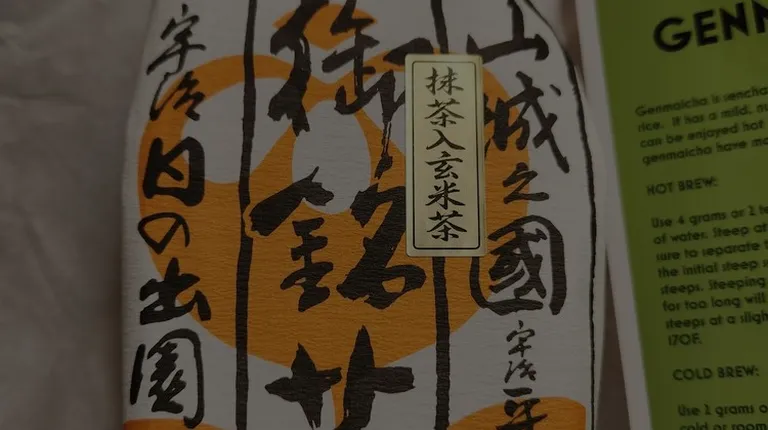 山城之國
宇治
抹茶入玄米茶
御銘
宇治日の出園
GENM
Genmaicha is sencha
rice. It has a mild, nu
can be enjoyed hot
genmaicha have mo
HOT BREW:
Use 4 grams or 2 te
of water. Steep at
sure to separate t
the initial steep s
steeps. Steeping
for too long will
steeps at a sligh
170F.
COLD BREW:
Use 2 grams o
cold or room